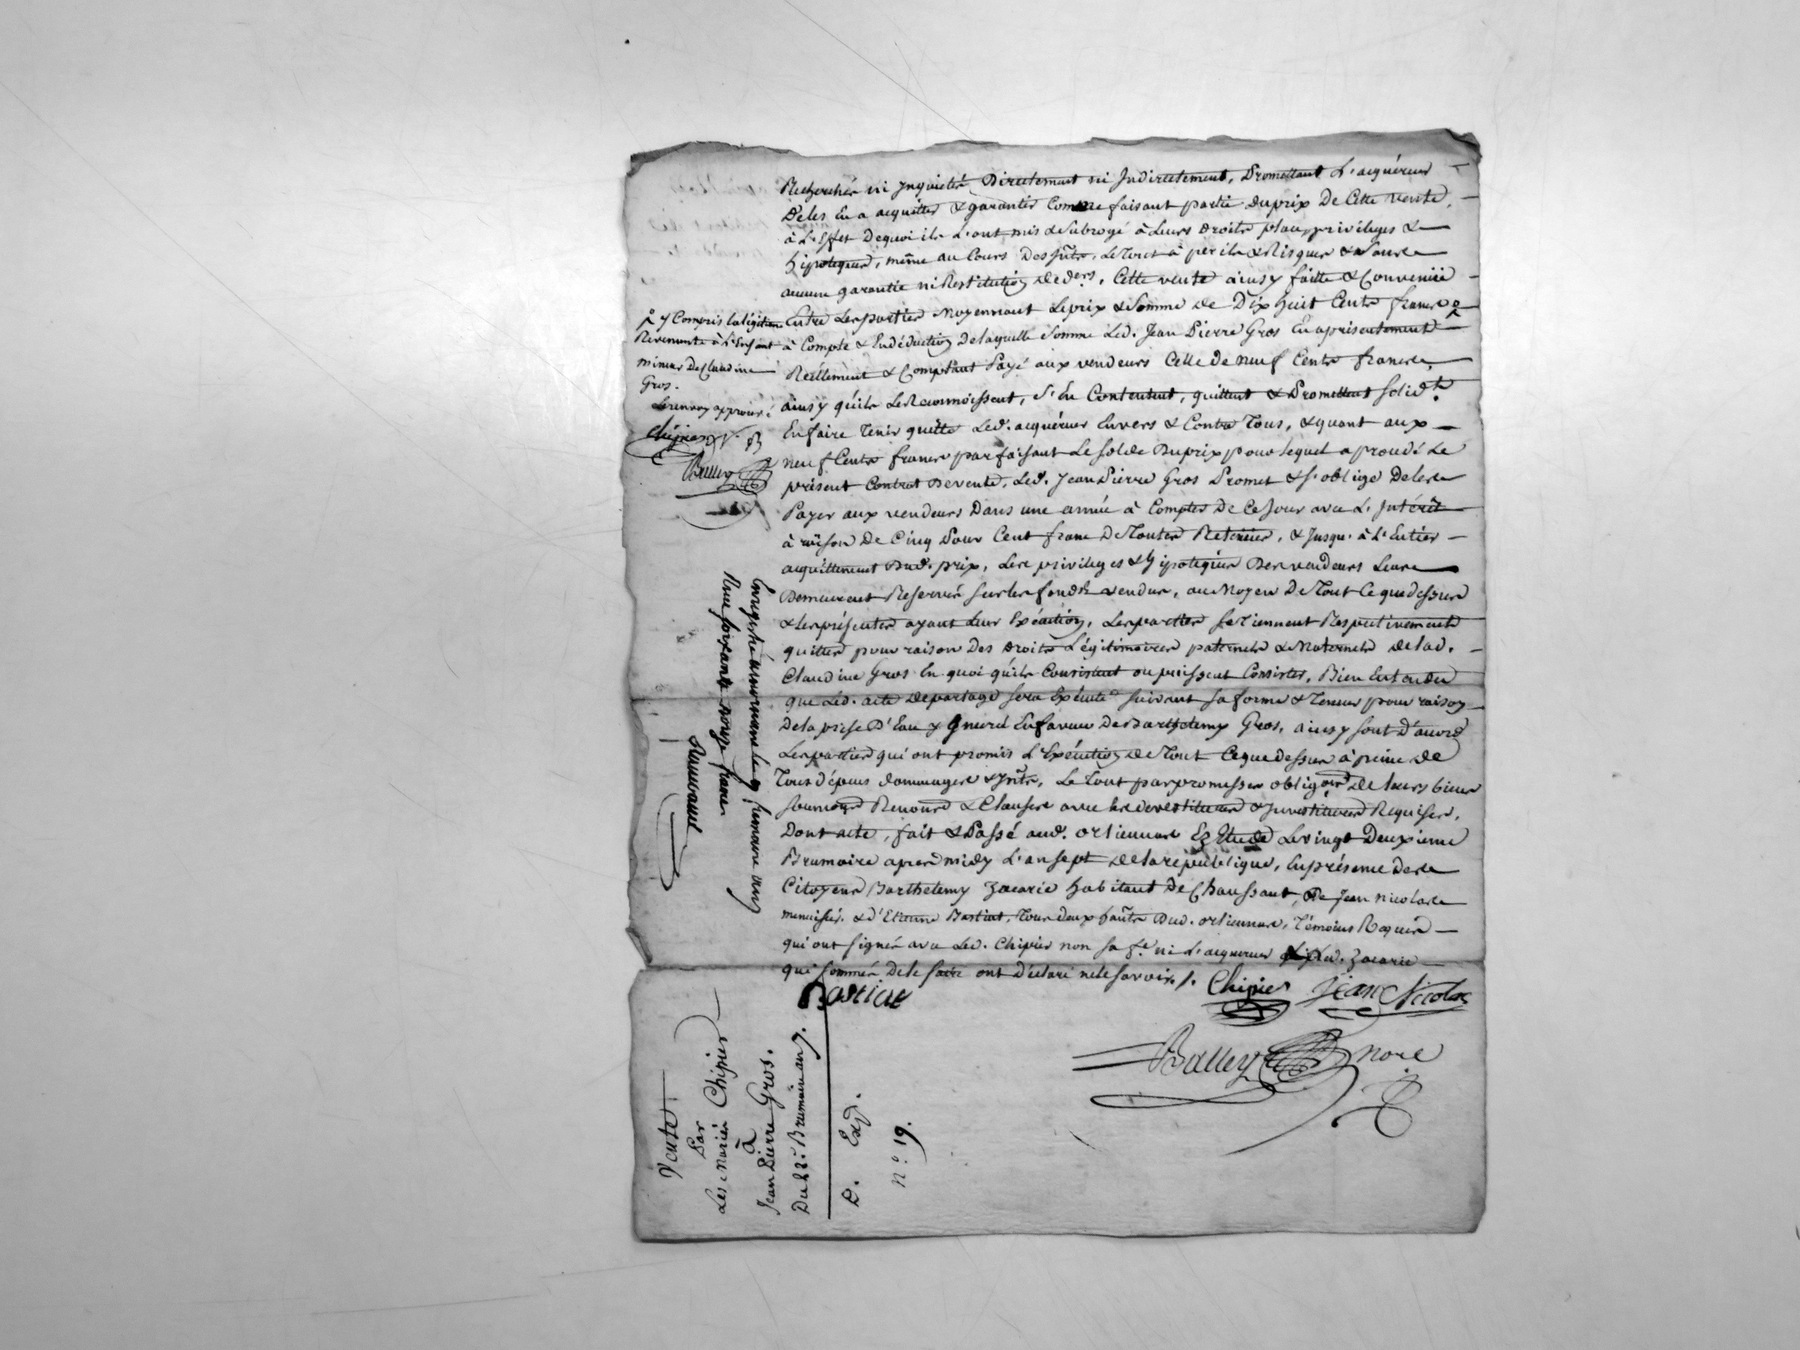 Recherchés ni inquiétés Directement ni Indirectement, Promettant L'acquéreur
De les En acquitter & garantir Comme faisant partie du prix De Cette vente,
à L'Effet De quoi ils L'ont mis & Subrogé à Leurs Droits place, privileges &
hipoteques, même au Cours Des Intts, Le Tout à perils & Risques & Sans
aucune garantie ni Restitution de ders. Cette vente ainsy faitte & Convenüe
Entre Les parties Moyennant Le prix & Somme de Dix huit Cents francs
à Compte & En déduction de laquelle Somme Led. Jean Pierre Gros En a présentement
Réellement & Comptant Payé aux vendeurs Celle de neuf Cents francs,
ainsy qu'ils Le Reconnoissent, s'En Contentent, quittent & Promettent solidt.
En faire Tenir quitte Led. acquéreur Envers & Contre Tous, & quant aux
neuf Cents francs parfaisant Le solde Du prix pour lequel a procédé Le
présent Contrat De vente, Led. Jean Pierre Gros Promet & s'oblige De les
Payer aux vendeurs Dans une année à Compter De Ce Jour avec L'Intérêt
à raison De Cinq Pour Cent franc De Toutes Retenües, & Jusqu'à L'Entier
acquittement Dud. prix, Les privileges & hipoteques Des vendeurs Leurs
Demeurent Reservés sur les fonds vendus, au Moyen De Tout Ce que dessus
& Les présentes ayant Leur Exécution, Les parties se Tiennent Respectivement
quittes pour raison Des Droits Légitimaires paternels & Maternels de lad.
Claudine Gros En quoi qu'ils Consistent ou puissent Consister, Bien Entendu
que Led. acte De partage sera Exécuté suivant sa forme & Teneur pour raison
De la prise D'Eau y En faveur De Barthelemy Gros, ainsy sont D'accord
Les parties qui ont promis L'Exécution de Tout Ce que dessus à peine de
Tous dépens dommages & Intts, Le Tout par promesses obligon de leurs biens
soumons Renons & Clauses avec les devestitures & Investitures Requises.
Dont acte, fait & Passé aud. orliennas Ez Etude Le vingt Deuxieme
Brumaire apres midy L'an sept de la république, En présence des
Citoyens Barthelemy Zacarie habitant De Chaussant, De Jean nicolas
menuisier & d'Etienne Bastiat, Tous deux hants Dud. orliennas, Témoins Requis
qui ont signés avec Led. Chipier non sa fe. ni L'acquereur Led. Zacarie
qui sommés De le faire ont Déclaré ne le savoir./.
Chipier Jean Nicolas
Bastiat
Balley nore
y Compris la légitime
Revenante à L'Enfant
mineur De Claudine
Gros.
Le renvoy approuvé
Chipier
Balley
Enregistré à le 29 brumaire an 7
Reçu soixante douze francs
Vente
Par
Les Mariés Chipier
à
Jean Pierre Gros.
Du 22: Brumaire an 7.
D. Exp.
n° 19.